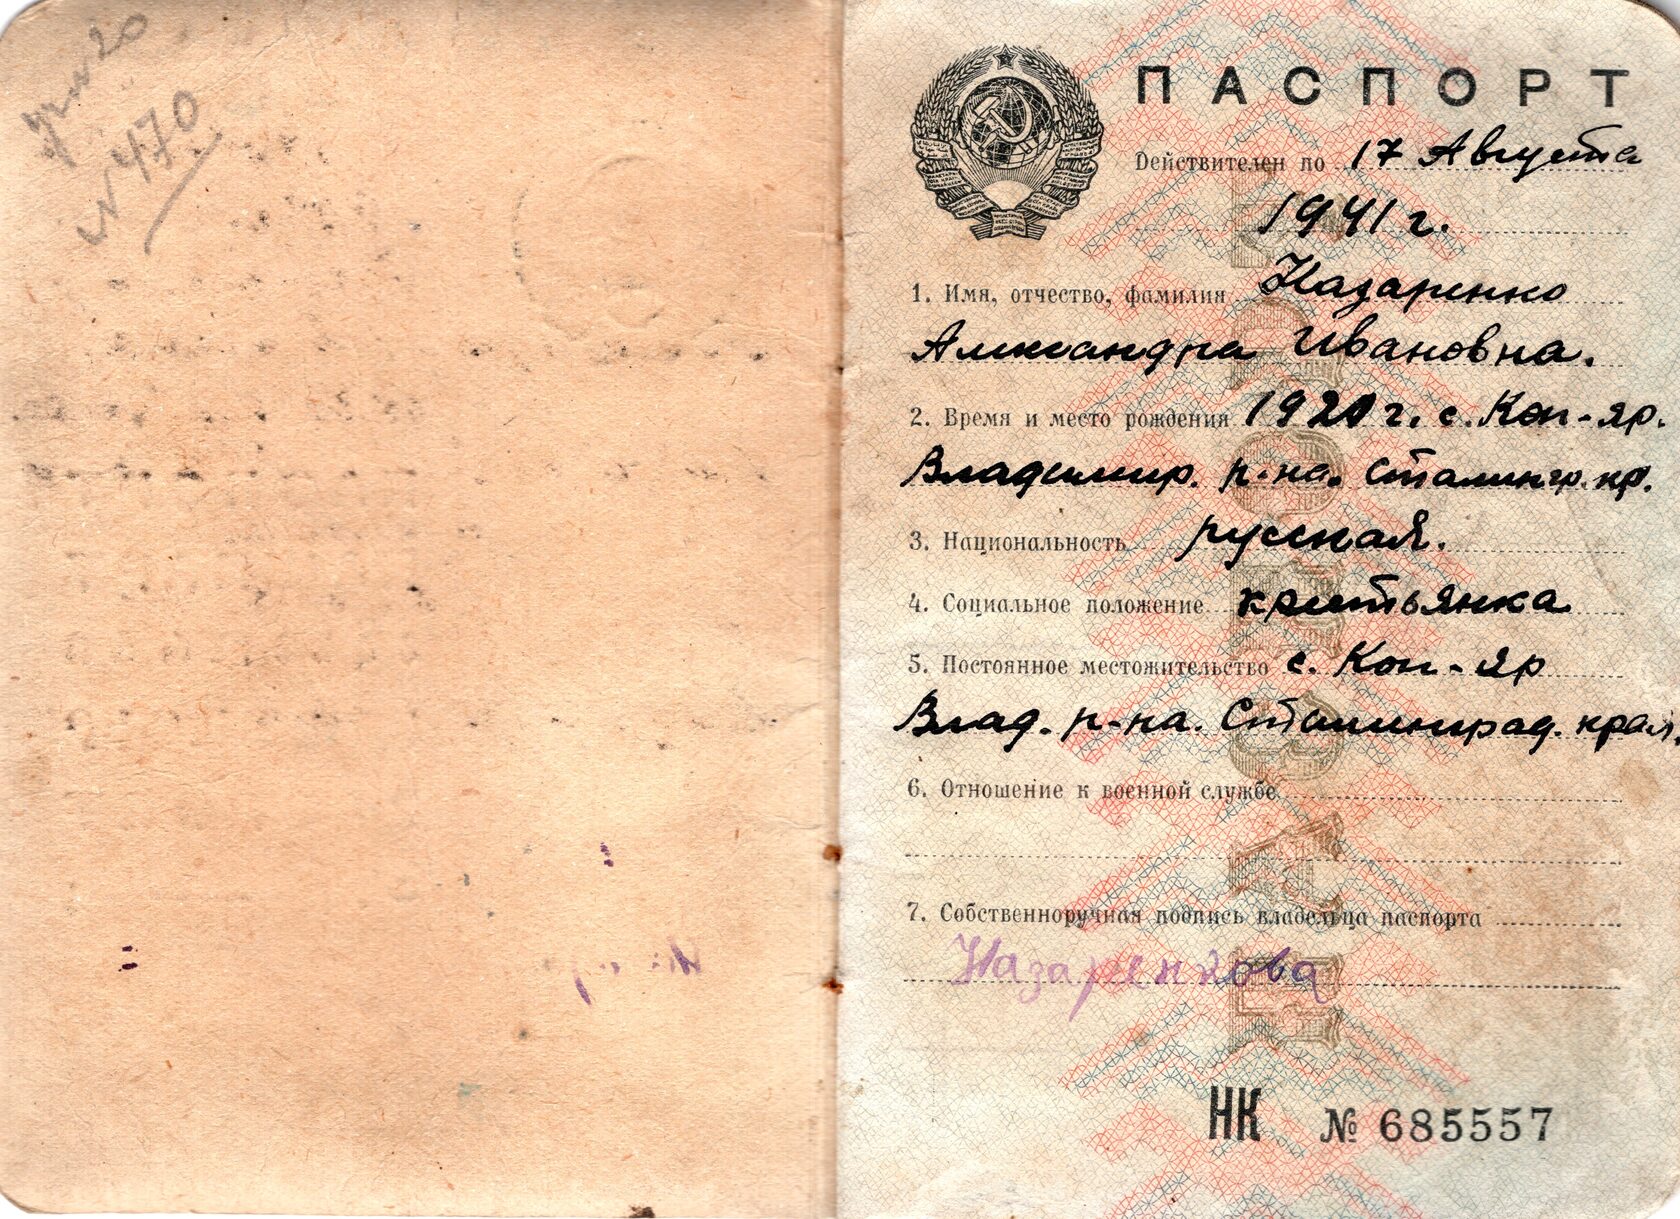 № 470
ПАСПОРТ
Действителен по 17 Августа
1941 г.
1. Имя, отчество, фамилия Назаренко
Александра Ивановна.
2. Время и место рождения 1920 г. с. Коп-яр.
Владимир. р-на. Сталингр. кр.
3. Национальность русская.
4. Социальное положение крестьянка
5. Постоянное местожительство с. Коп-яр
Влад. р-на. Сталинград. края.
6. Отношение к военной службе
7. Собственноручная подпись владельца паспорта
Назаренкова
НК № 685557